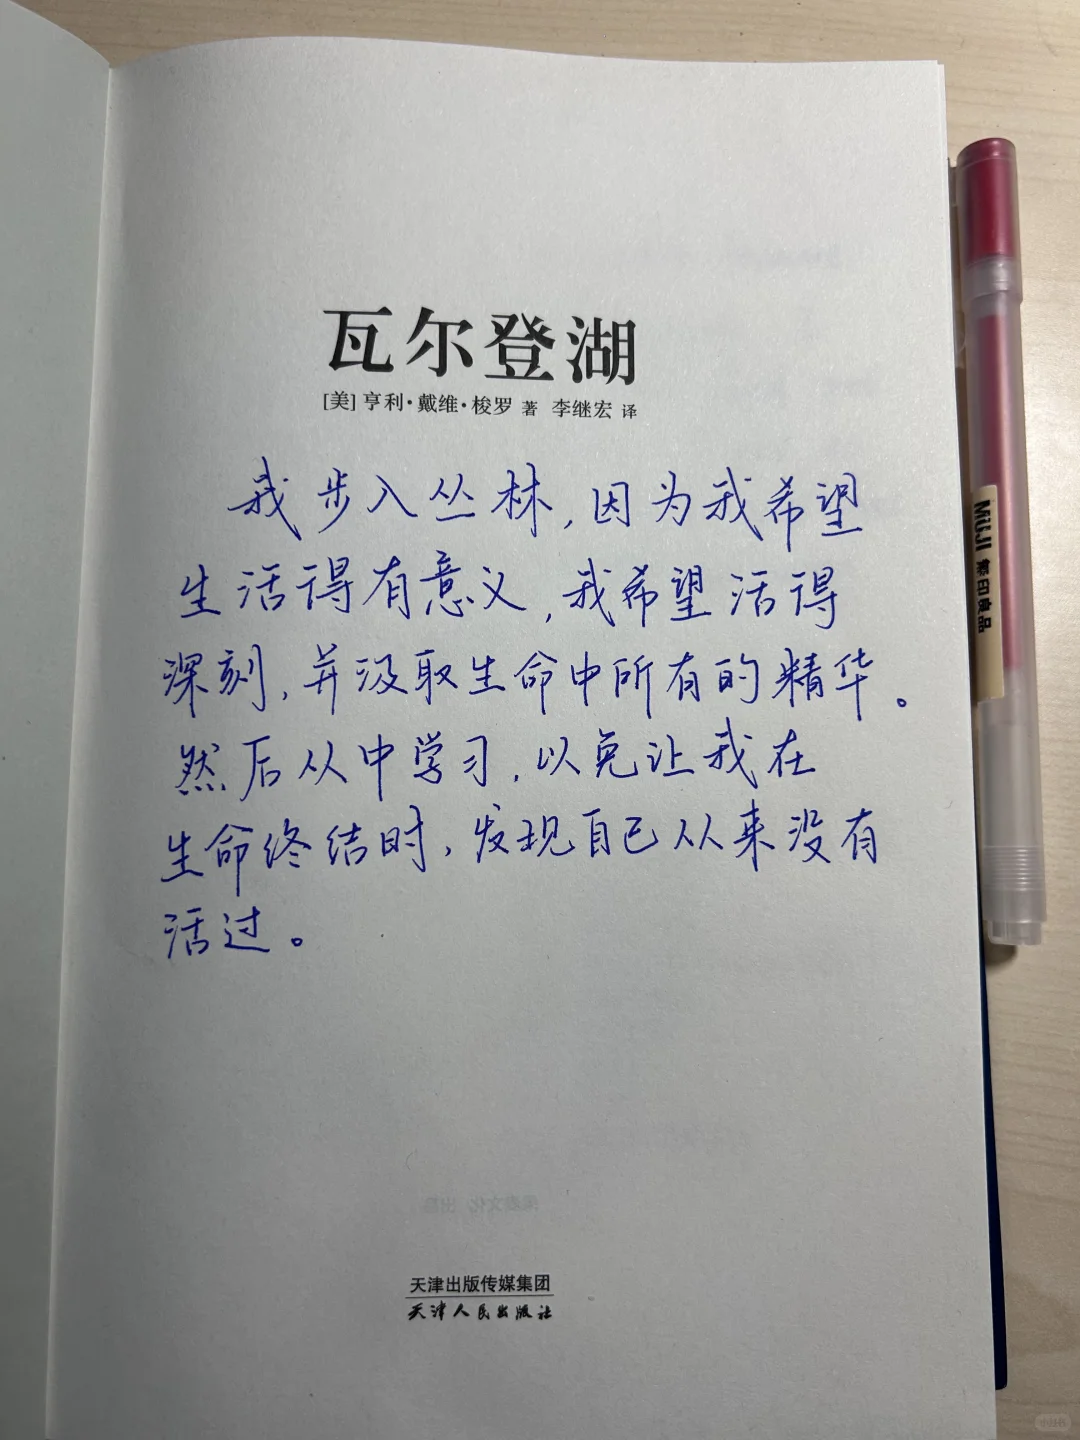 瓦尔登湖
[美] 亨利·戴维·梭罗 著 李继宏 译
我步入丛林,因为我希望
生活得有意义,我希望活得
深刻,并汲取生命中所有的精华。
然后从中学习,以免让我在
生命终结时,发现自己从来没有
活过。
天津出版传媒集团
天津人民出版社
MUJI 無印良品